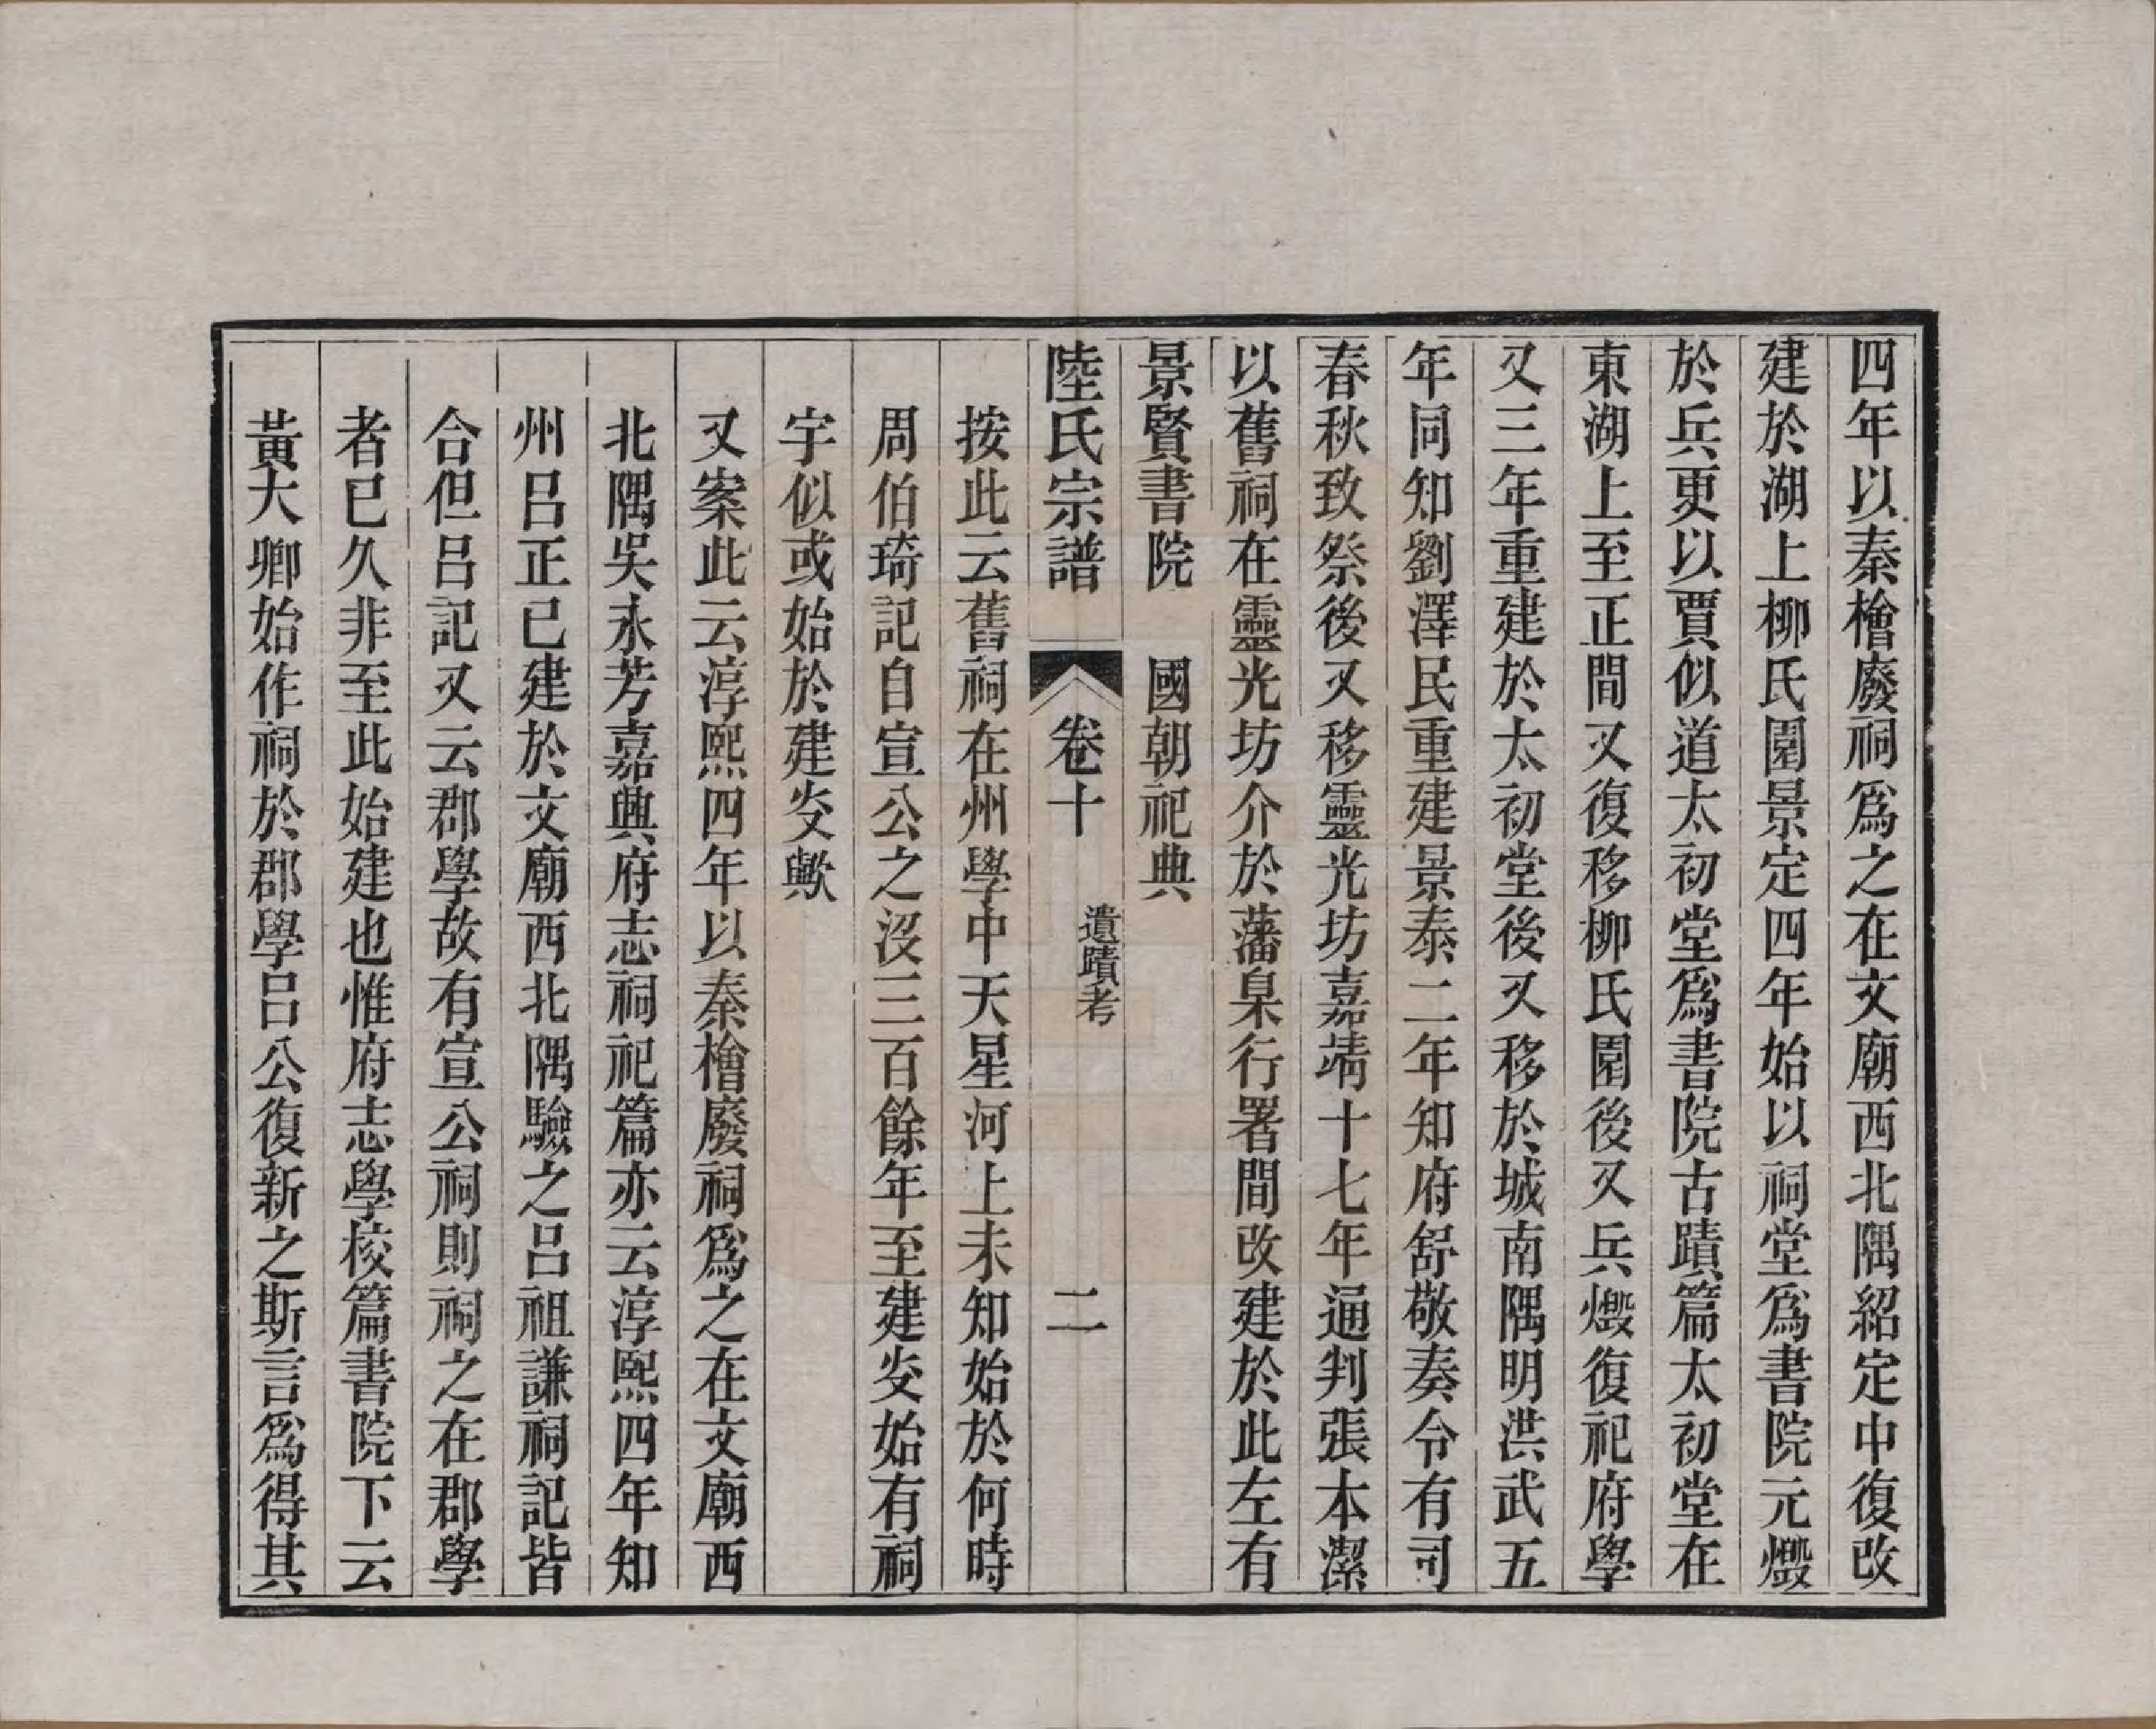 四年以秦檜廢祠爲之在文廟西北隅紹定中復改
建於湖上柳氏園景定四年始以祠堂爲書院元燬
於兵更以賈似道太初堂爲書院古蹟篇太初堂在
東湖上至正間又復移柳氏園後又兵燬復祀府學
又三年重建於太初堂後又移於城南隅明洪武五
年同知劉澤民重建景泰二年知府舒敬奏令有司
春秋致祭後又移靈光坊嘉靖十七年通判張本潔
以舊祠在靈光坊介於藩臬行署間改建於此左有
景賢書院　國朝祀典
陸氏宗譜　卷十　遺蹟考　二
按此云舊祠在州學中天星河上未知始於何時
周伯琦記自宣公之沒三百餘年至建炎始有祠
宇似或始於建炎歟
又案此云淳熙四年以秦檜廢祠爲之在文廟西
北隅吳永芳嘉興府志祠祀篇亦云淳熙四年知
州呂正己建於文廟西北隅驗之呂祖謙祠記皆
合但呂記又云郡學故有宣公祠則祠之在郡學
者已久非至此始建也惟府志學校篇書院下云
黃大卿始作祠於郡學呂公復新之斯言爲得其